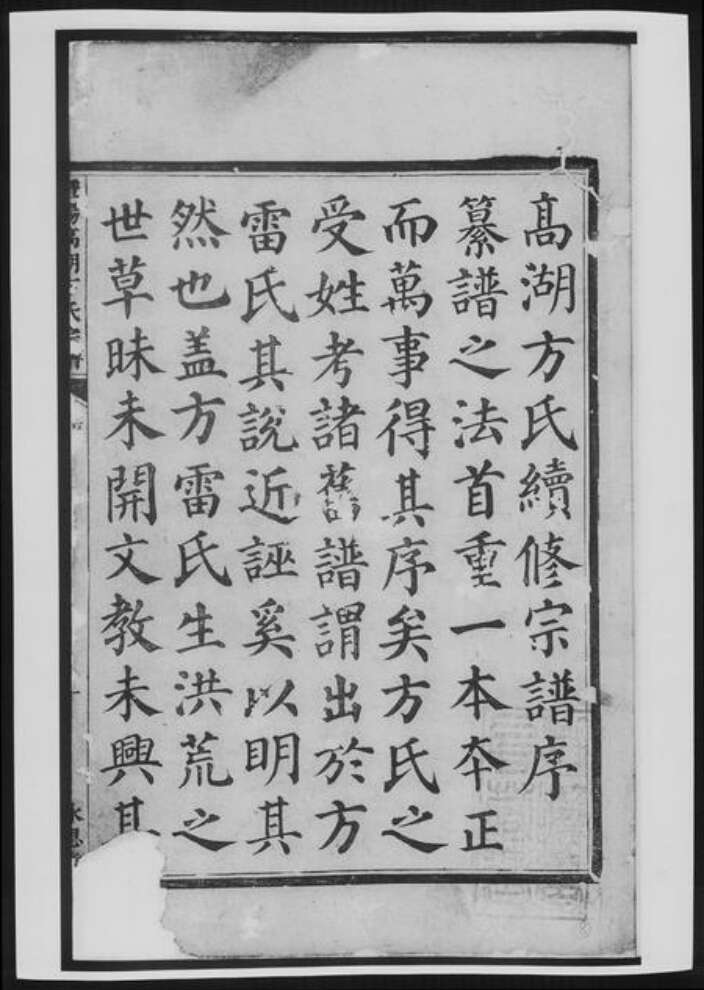 高湖方氏續修宗譜序
纂譜之法首重一本本正
而萬事得其序矣方氏之
受姓考諸舊譜謂出於方
雷氏其說近誣奚以明其
然也盖方雷氏生洪荒之
世草昧未開文教未興其
高湖方氏宗譜